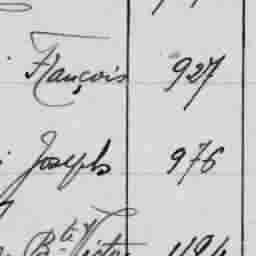 François 927
Joseph 976
Bte Victor